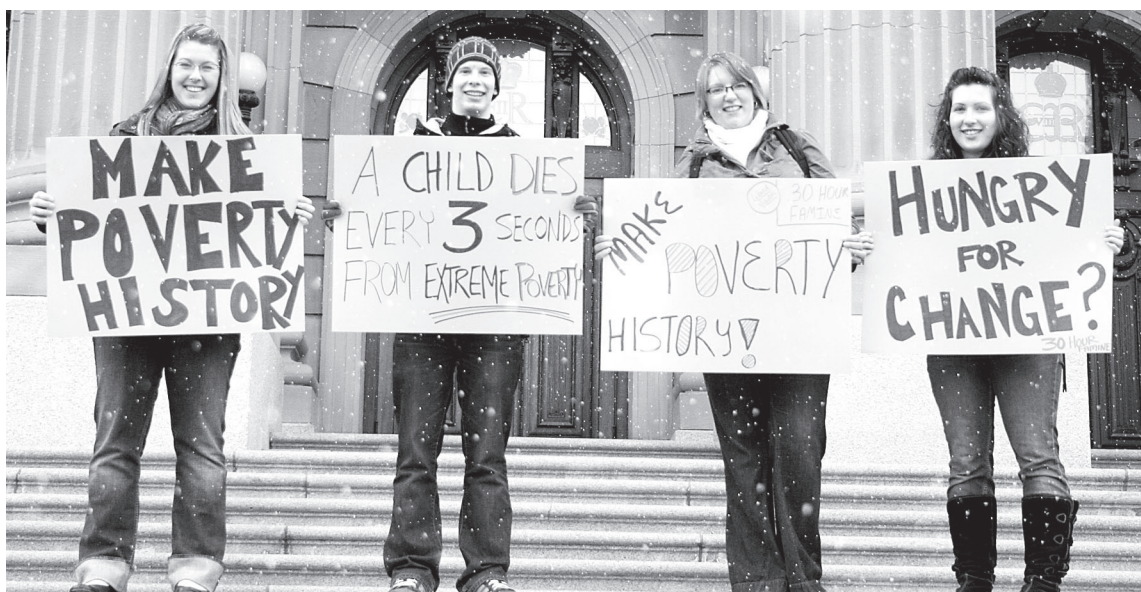 MAKE
POVERTY
HISTORY
A CHILD DIES
EVERY 3 SECONDS
FROM EXTREME POVERTY
30 HOUR
FAMINE
MAKE
POVERTY
HISTORY!
HUNGRY
FOR
CHANGE?
30 HOUR
FAMINE